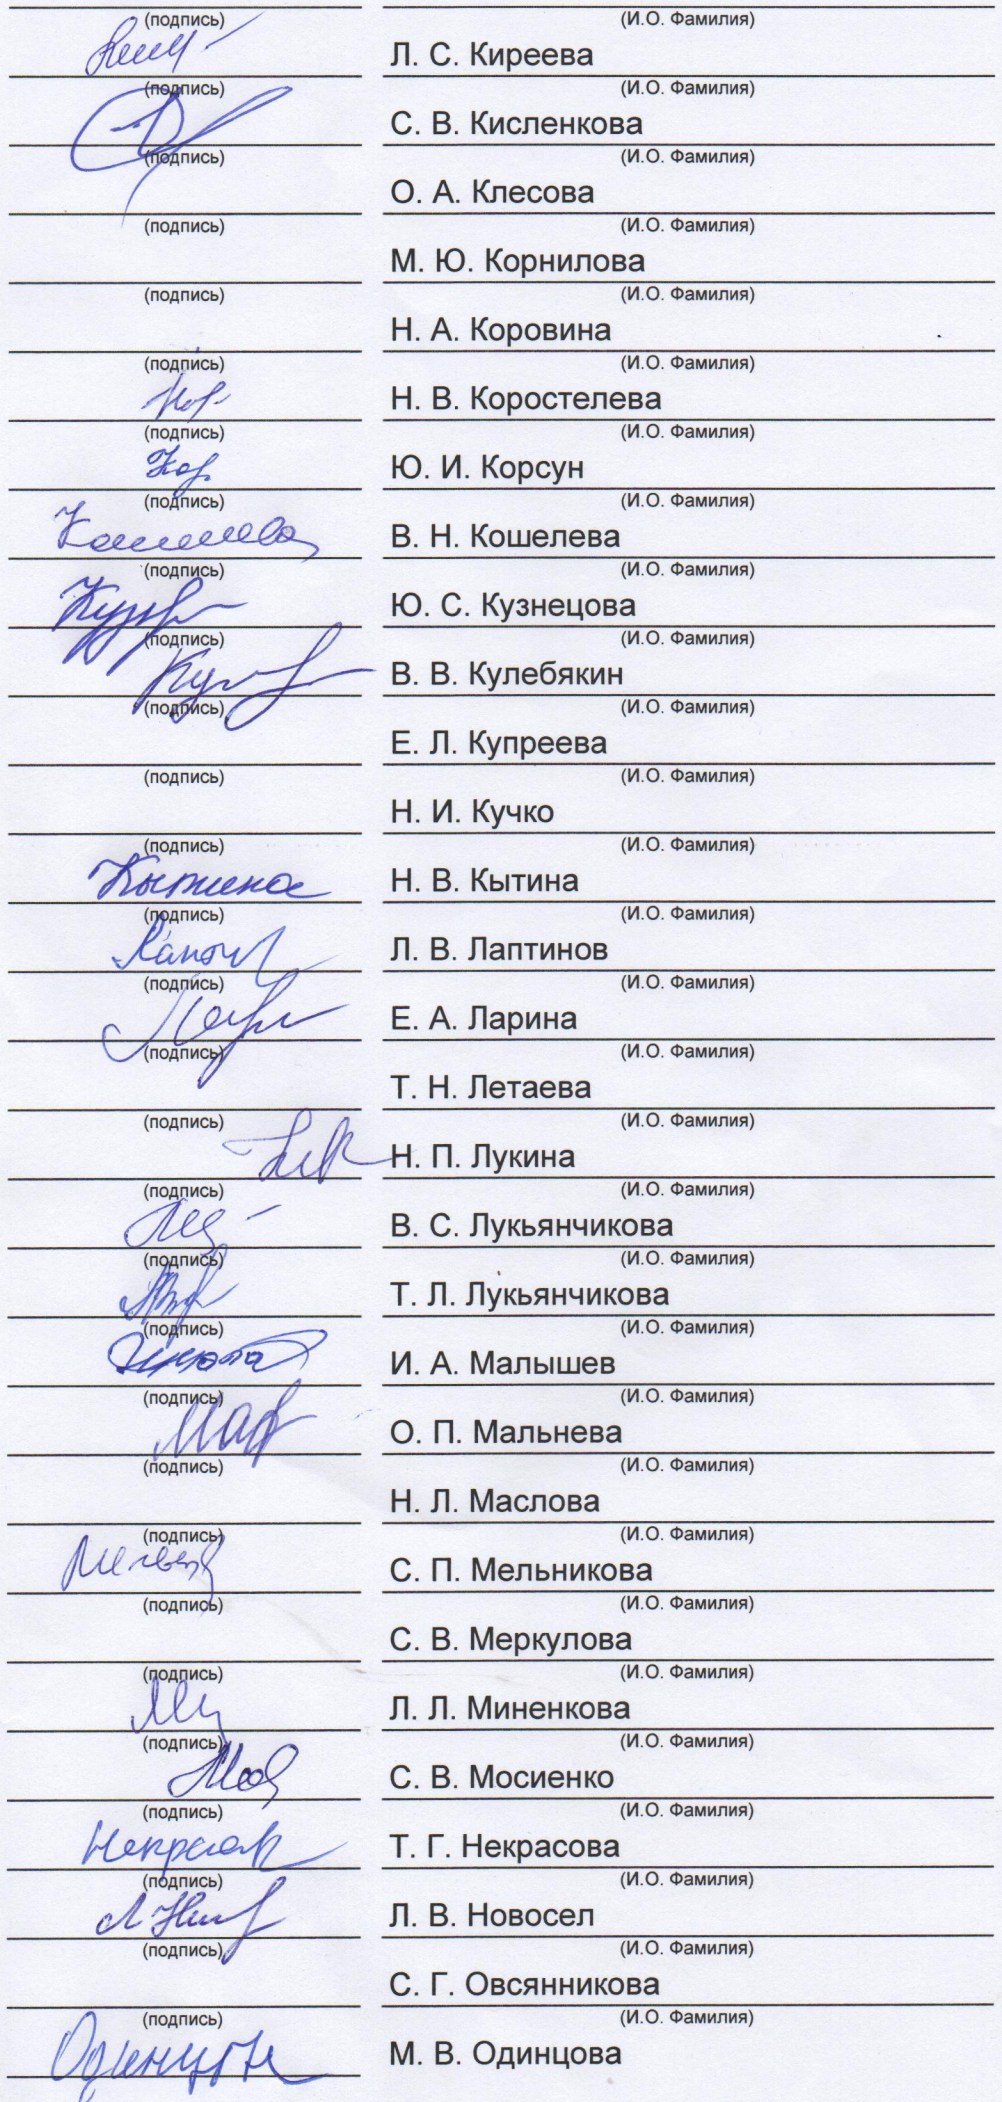 (подпись) (И.О. Фамилия)
Л. С. Киреева
(подпись) (И.О. Фамилия)
С. В. Кисленкова
(подпись) (И.О. Фамилия)
О. А. Клесова
(подпись) (И.О. Фамилия)
М. Ю. Корнилова
(подпись) (И.О. Фамилия)
Н. А. Коровина
(подпись) (И.О. Фамилия)
Кор Н. В. Коростелева
(подпись) (И.О. Фамилия)
Кор Ю. И. Корсун
(подпись) (И.О. Фамилия)
Кошелева В. Н. Кошелева
(подпись) (И.О. Фамилия)
Ю. С. Кузнецова
(подпись) (И.О. Фамилия)
В. В. Кулебякин
(подпись) (И.О. Фамилия)
Е. Л. Купреева
(подпись) (И.О. Фамилия)
Н. И. Кучко
(подпись) (И.О. Фамилия)
Кытина Н. В. Кытина
(подпись) (И.О. Фамилия)
Л. В. Лаптинов
(подпись) (И.О. Фамилия)
Е. А. Ларина
(подпись) (И.О. Фамилия)
Т. Н. Летаева
(подпись) (И.О. Фамилия)
Н. П. Лукина
(подпись) (И.О. Фамилия)
В. С. Лукьянчикова
(подпись) (И.О. Фамилия)
Т. Л. Лукьянчикова
(подпись) (И.О. Фамилия)
И. А. Малышев
(подпись) (И.О. Фамилия)
О. П. Мальнева
(подпись) (И.О. Фамилия)
Н. Л. Маслова
(подпись) (И.О. Фамилия)
С. П. Мельникова
(подпись) (И.О. Фамилия)
С. В. Меркулова
(подпись) (И.О. Фамилия)
Л. Л. Миненкова
(подпись) (И.О. Фамилия)
С. В. Мосиенко
(подпись) (И.О. Фамилия)
Т. Г. Некрасова
(подпись) (И.О. Фамилия)
Л. В. Новосел
(подпись) (И.О. Фамилия)
С. Г. Овсянникова
(подпись) (И.О. Фамилия)
М. В. Одинцова